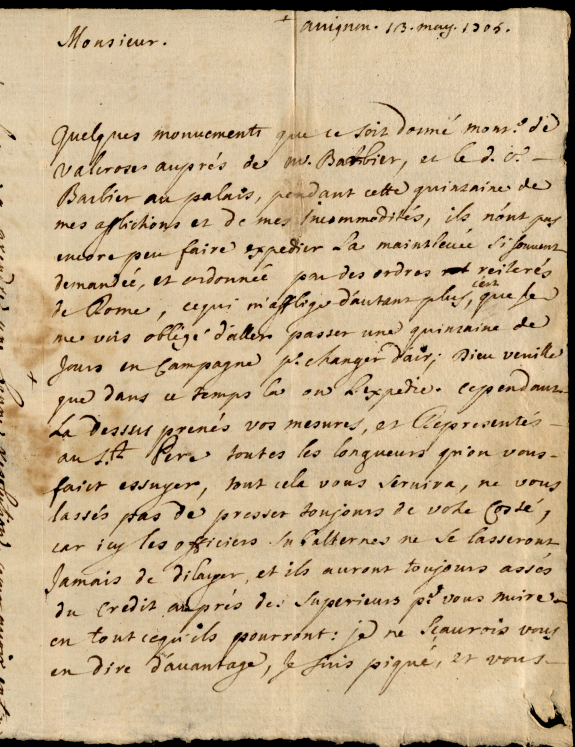 + avignon. 13. may. 1705.
Monsieur.
Quelques monuements que ce soit donné monsr. de
Valcroses auprés de mr. Barbier, et le d. sr.
Barbier au palais, pendant cette quinzaine de
mes afflictions et de mes Incommodités, ils n'ont pas
encore peu faire expedier La mainlevée si souvent
demandée, et ordonnée par des ordres reiterés
de Rome, cequi m'afflige d'autant plus, c'est que Je
me vois obligé d'aller passer une quinzaine de
Jours en Campagne pr. changer d'air; Dieu veuille
que dans ce temps la on L'expedie. cependant
La dessus prenés vos mesures, et Representés
au St. Pere toutes les longueurs qu'on vous
faict essuyer, tout cela vous servira, ne vous
lassés pas de presser toujours de votre Costé,
car icy les officiers Subalternes ne se lasseront
Jamais de dilayer, et ils auront toujours assés
du Credit auprés des Superieurs pr. vous nuire
en tout cequ'ils pourront: je ne scaurois vous
en dire d'avantage, Je suis piqué, et vous